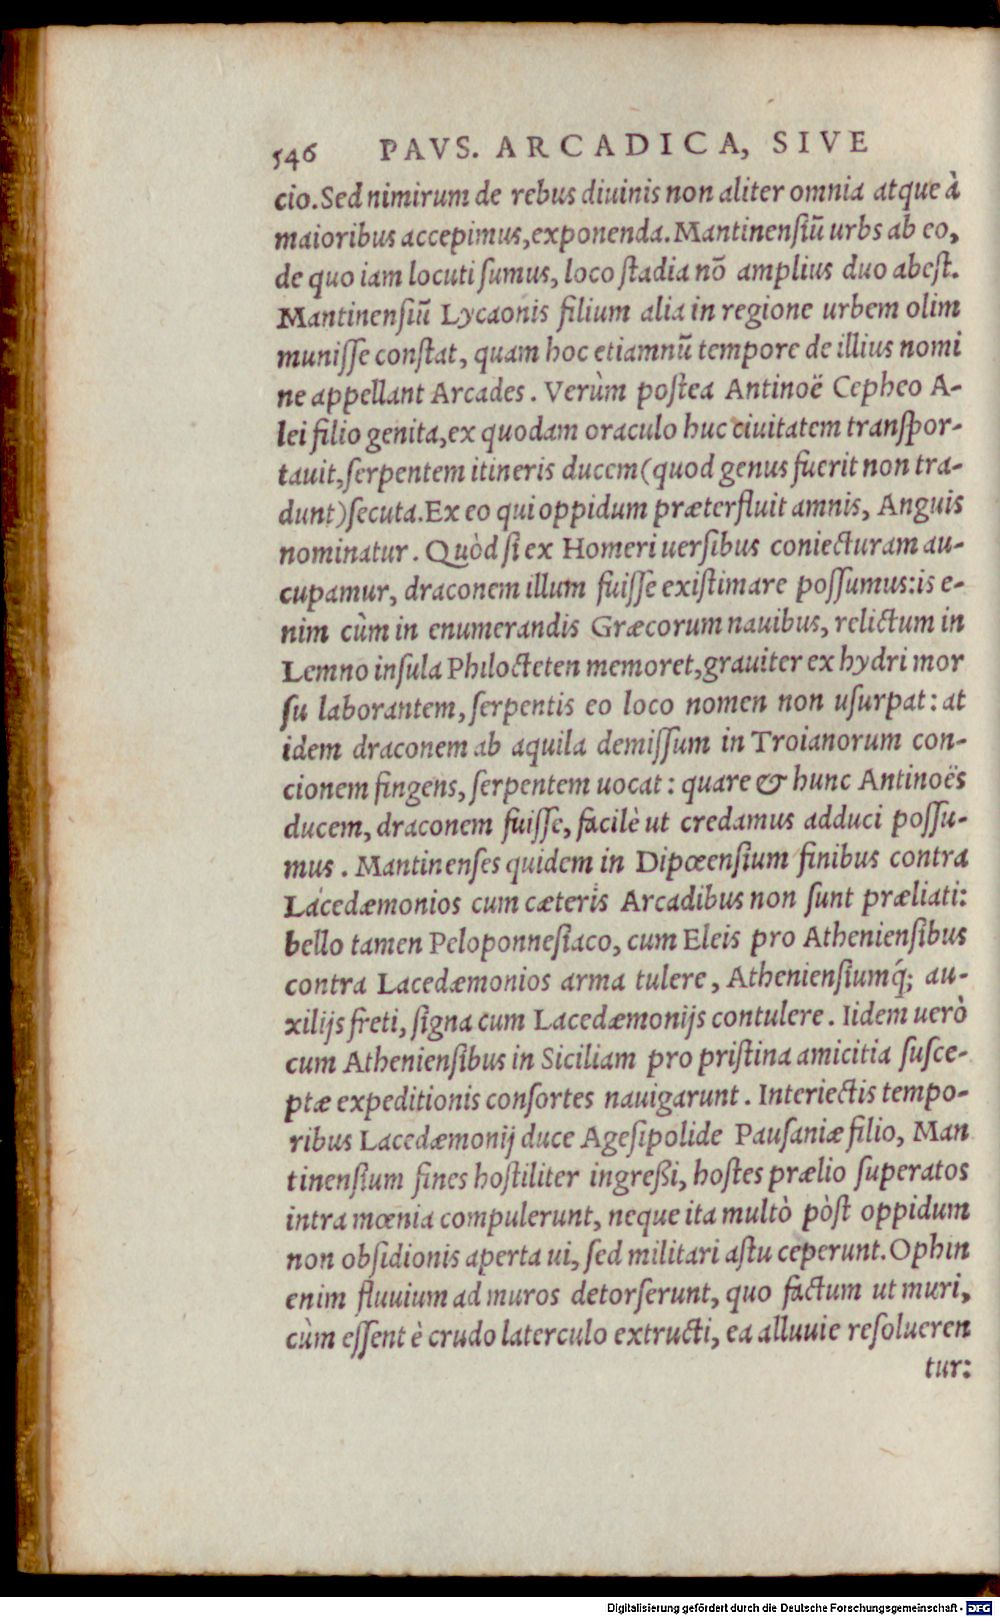 546 PAVS. ARCADICA, SIVE
cio. Sed nimirum de rebus diuinis non aliter omnia atque à
maioribus accepimus, exponenda. Mantinensiũ urbs ab eo,
de quo iam locuti sumus, loco stadia nõ amplius duo abest.
Mantinensiũ Lycaonis filium alia in regione urbem olim
munisse constat, quam hoc etiamnũ tempore de illius nomi
ne appellant Arcades. Verùm postea Antinoë Cepheo A-
lei filio genita, ex quodam oraculo huc ciuitatem transpor-
tauit, serpentem itineris ducem (quod genus fuerit non tra-
dunt) secuta. Ex eo qui oppidum præterfluit amnis, Anguis
nominatur. Quòd si ex Homeri uersibus coniecturam au-
cupamur, draconem illum fuisse existimare possumus: is e-
nim cùm in enumerandis Græcorum nauibus, relictum in
Lemno insula Philocteten memoret, grauiter ex hydri mor
su laborantem, serpentis eo loco nomen non usurpat: at
idem draconem ab aquila demissum in Troianorum con-
cionem fingens, serpentem uocat: quare & hunc Antinoës
ducem, draconem fuisse, facilè ut credamus adduci possu-
mus. Mantinenses quidem in Dipœensium finibus contra
Lacedæmonios cum cæteris Arcadibus non sunt præliati:
bello tamen Peloponnesiaco, cum Eleis pro Atheniensibus
contra Lacedæmonios arma tulere, Atheniensiumq́; au-
xilijs freti, signa cum Lacedæmonijs contulere. Iidem uerò
cum Atheniensibus in Siciliam pro pristina amicitia susce-
ptæ expeditionis consortes nauigarunt. Interiectis tempo-
ribus Lacedæmonij duce Agesipolide Pausaniæ filio, Man
tinensium fines hostiliter ingreßi, hostes prælio superatos
intra mœnia compulerunt, neque ita multò pòst oppidum
non obsidionis aperta ui, sed militari astu ceperunt. Ophin
enim fluuium ad muros detorserunt, quo factum ut muri,
cùm essent è crudo laterculo extructi, ea alluuie resolueren
tur:
Digitalisierung gefördert durch die Deutsche Forschungsgemeinschaft - DFG